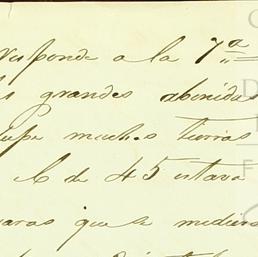 responde a la 7ª
s grandes abenidas
upe muchas tierras
C de 45 estava
varas que se midieron